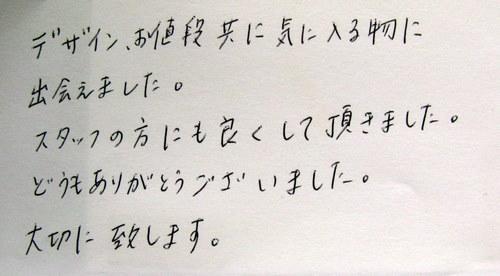 デザイン、お値段共に気に入る物に
出会えました。
スタッフの方にも良くして頂きました。
どうもありがとうございました。
大切に致します。